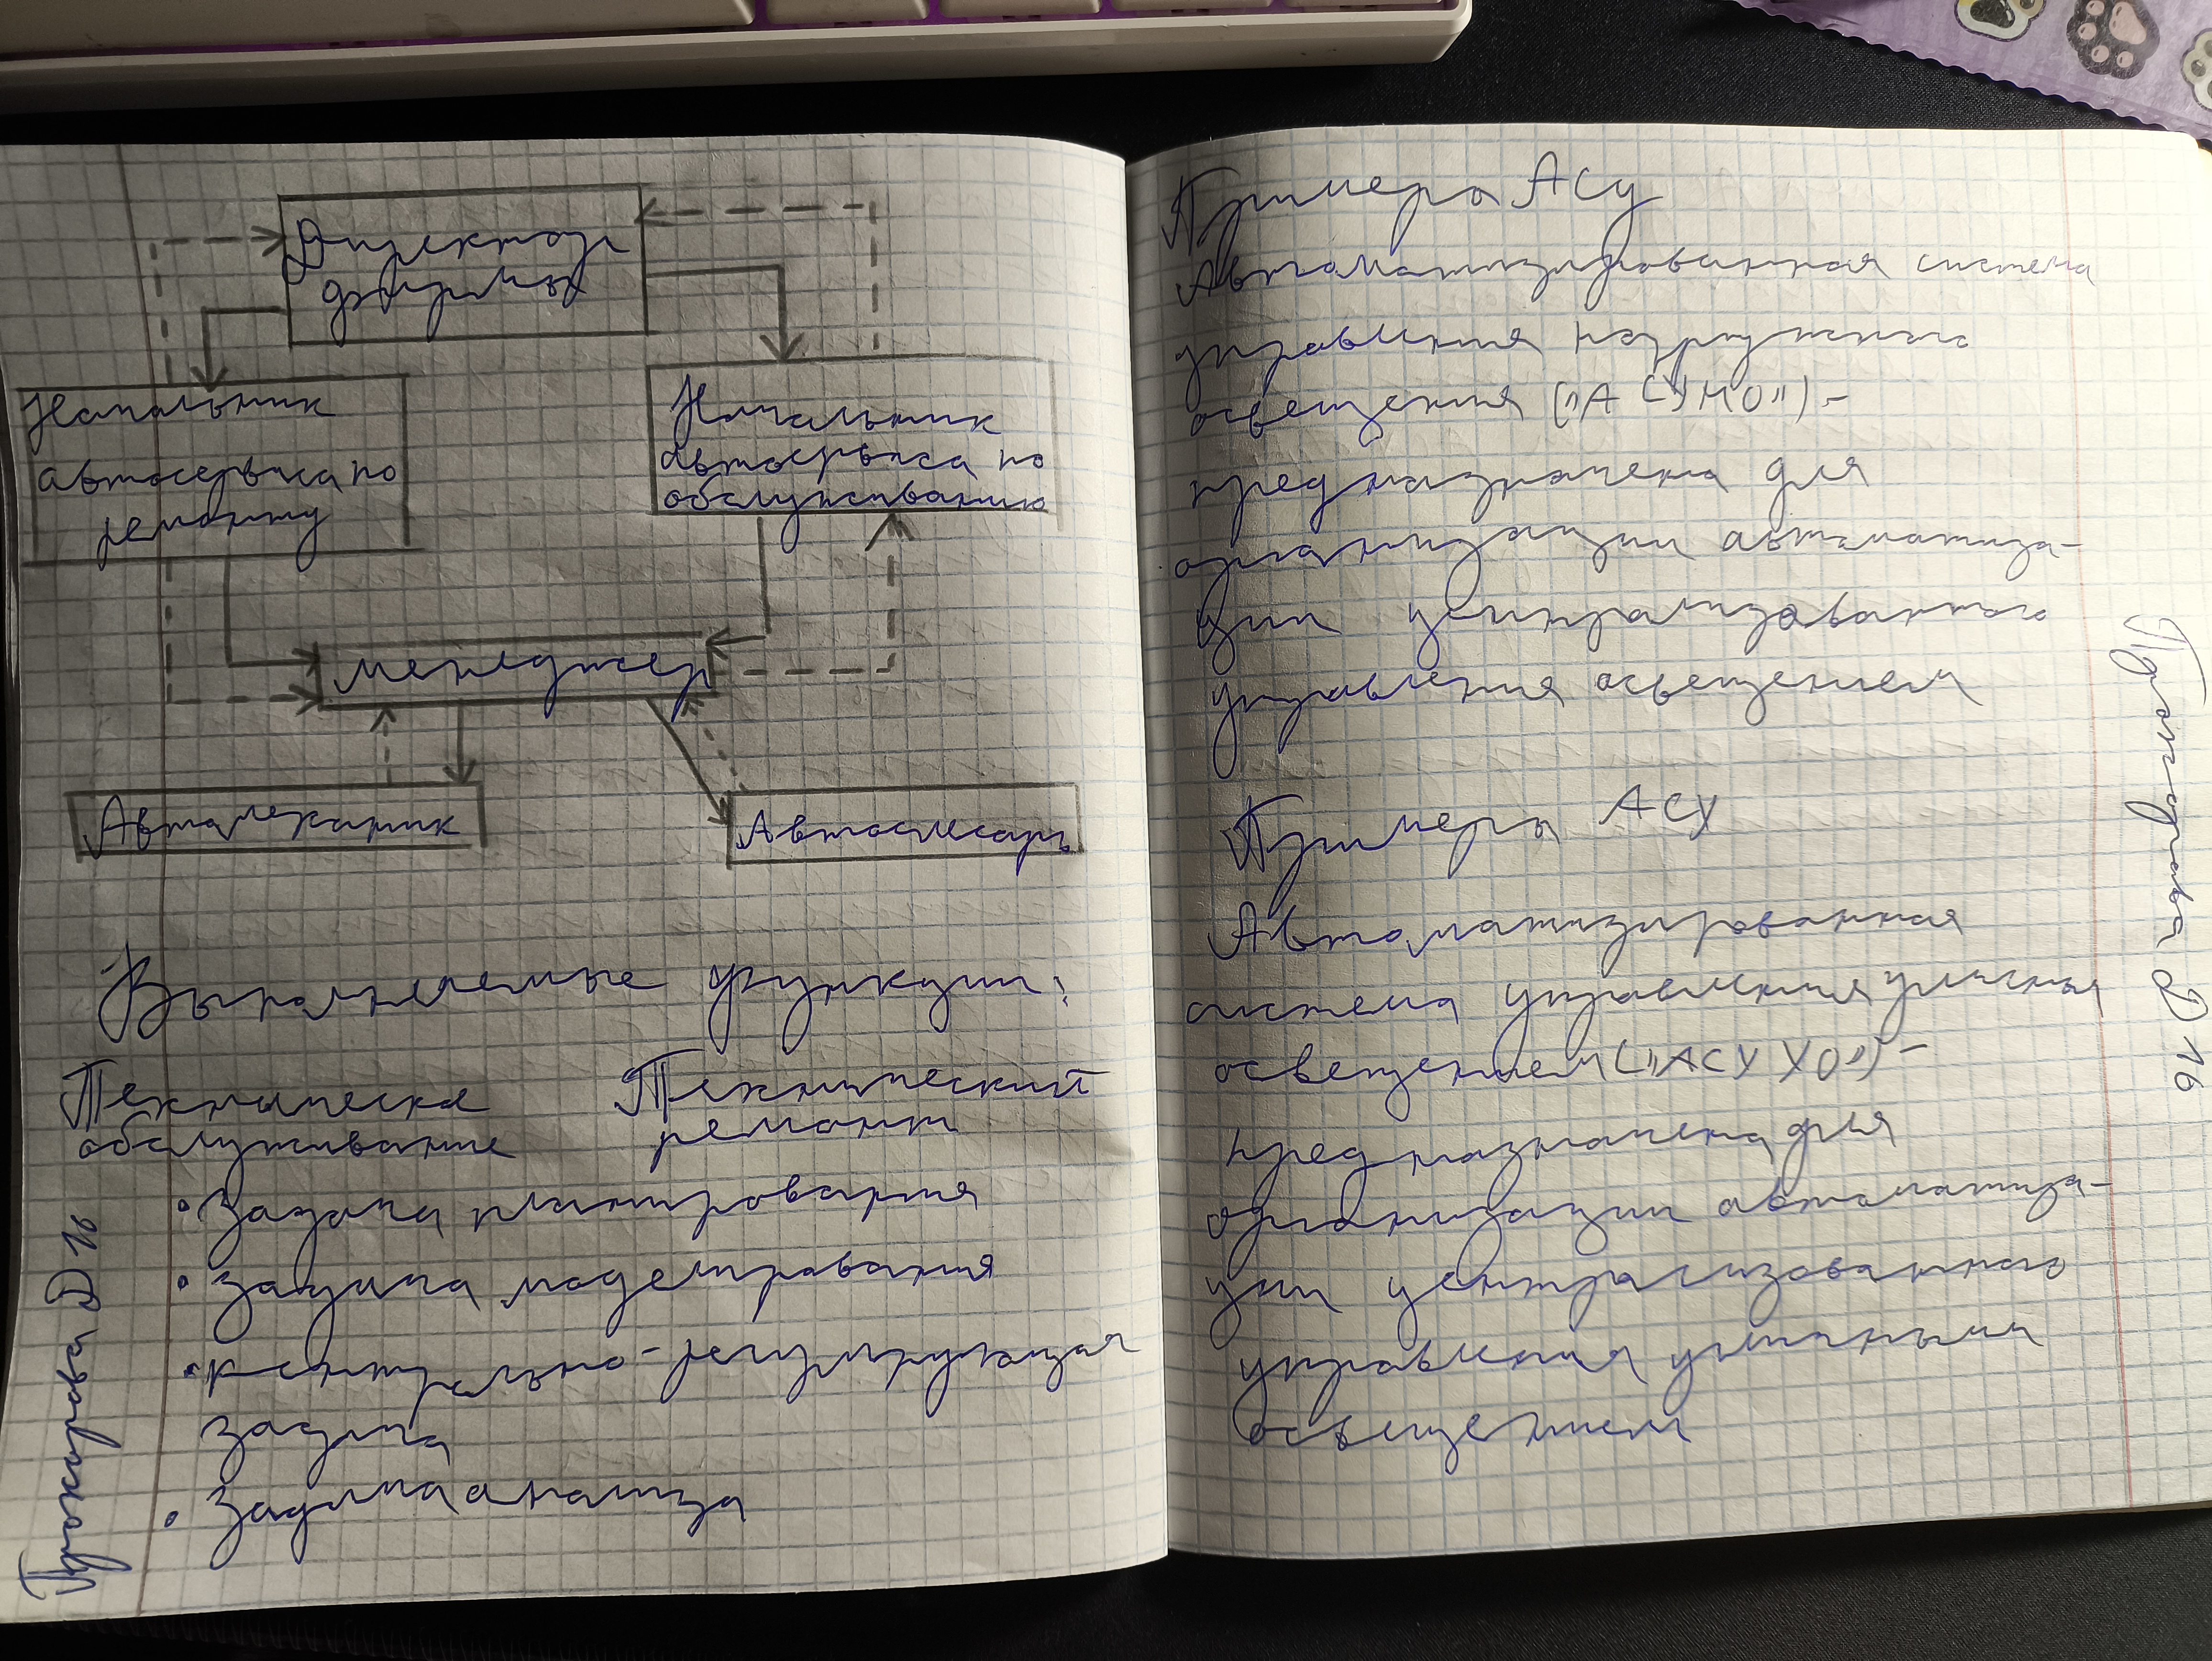 Директор
фирмы
Начальник
автосервиса по
ремонту
Начальник
автосервиса по
обслуживанию
менеджер
Автомеханик
Автослесарь
Выполняемые функции:
Техническое
обслуживание
Технический
ремонт
• Задача планирования
• Задача моделирования
• контрольно-регулирующая
задача
• Задача анализа
Примеры АСУ
Автоматизированная система
управления наружного
освещения („АСУНО") -
предназначена для
организации автоматиза-
ции централизованного
управления освещением
Примеры АСУ
Автоматизированная
система управления уличным
освещением („АСУ УО") -
предназначена для
организации автоматиза-
ции централизованного
управления уличным
освещением